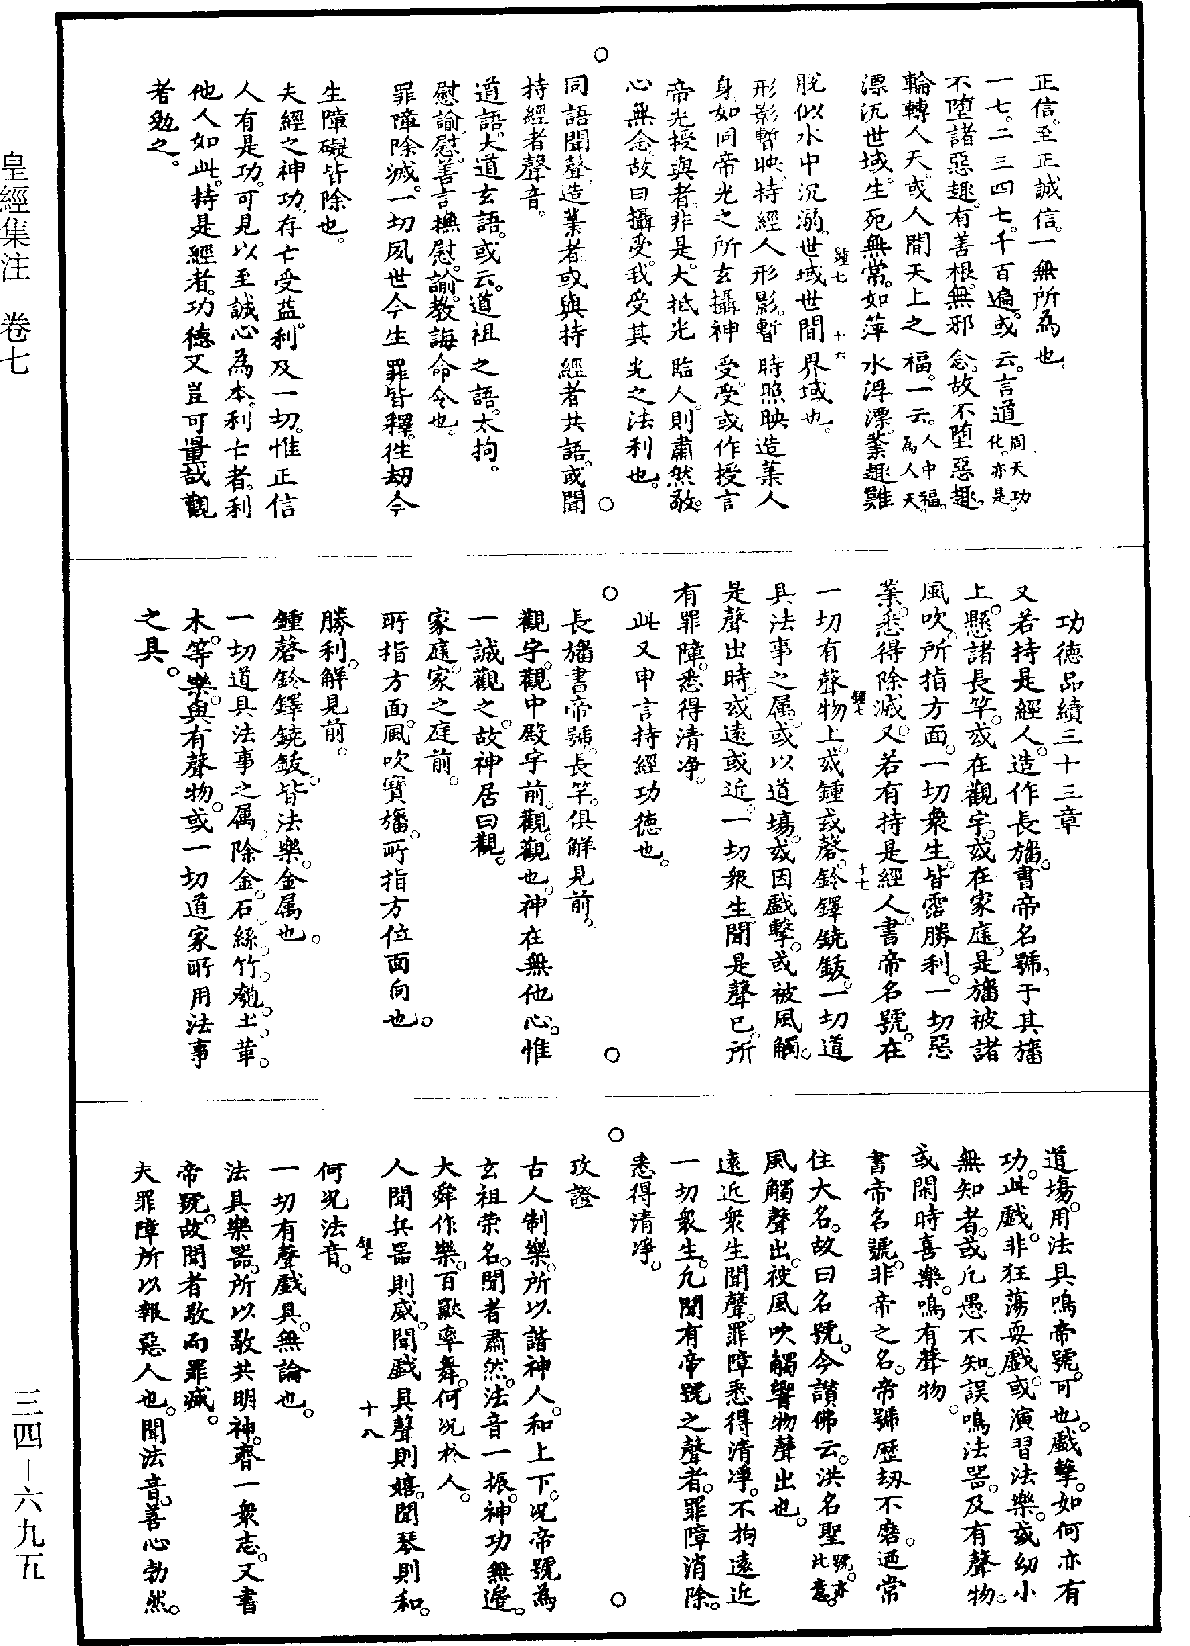 皇經集注　卷七
三四—六九五
正信。至正誠信。一無所為也。
一七。二三四七。千百遍。或云。言通周天功化。亦是。
不墮諸惡趣。有善根。無邪念。故不墮惡趣。
輪轉人天。或人間天上之福。一云。人中福。為人天。
漂沉世域。生死無常。如萍水浮漂。業趣難
脫。似水中沉溺。世域世間界域也。
形影暫映。持經人形影。暫時照映造業人
身。如同帝光之所玄攝神受。受或作授。言
帝光授與者。非是。大抵光臨人。則肅然敬。
心無念。故曰攝受。我受其光之法利也。
同語聞聲。造業者。或與持經者共語。或聞
持經者聲音。
道語。大道玄語。或云。道祖之語。太拘。
慰諭。慰。善言撫慰。諭。教誨命令也。
罪障除滅。一切夙世今生罪皆釋。往劫今
生障礙皆除也。
夫經之神功。存亡受益。利及一切。惟正信
人有是功。可見以至誠心為本。利亡者。利
他人如此。持是經者。功德又豈可量哉。觀
者勉之。
功德品續三十三章
又若持是經人。造作長旛。書帝名號。于其旛
上。懸諸長竿。或在觀宇。或在家庭。是旛被諸
風吹。所指方面。一切衆生。皆霑勝利。一切惡
業。悉得除滅。又若有持是經人。書帝名號。在
一切有聲物上。或鍾或磬。鈴鐸鐃鈸。一切道
具法事之属。或以道場。或因戲擊。或被風觸。
是聲出時。或遠或近。一切衆生。聞是聲已。所
有罪障。悉得清凈。
此又申言持經功德也。
長旛書帝號。長竿。俱解見前。
觀宇。觀中殿宇前。觀。觀也。神在無他心。惟
一誠觀之。故神居曰觀。
家庭。家之庭前。
所指方面。風吹寶旛。所指方位面向也。
勝利。解見前。
鍾磬鈴鐸鐃鈸。皆法樂。金属也。
一切道具法事之属。除金。石。絲。竹。匏。土。革。
木。等樂。與有聲物。或一切道家所用法事
之具。
道場。用法具鳴帝號。可也。戲擊。如何亦有
功。此戲。非狂蕩耍戲。或演習法樂。或幼小
無知者。或凡愚不知。誤鳴法器。及有聲物。
或閑時喜樂。鳴有聲物。
書帝名號。非帝之名。帝號歷劫不磨。迺常
住大名。故曰名號。今讃佛云。洪名聖號。亦此意。
風觸聲出。被風吹觸響物聲出也。
遠近衆生聞聲。罪障悉得清凈。不拘遠近
一切衆生。凡聞有帝號之聲者。罪障消除。
悉得清凈。
攷證
古人制樂。所以諧神人。和上下。况帝號為
玄祖榮名。聞者肅然。法音一振。神功無邊。
大舜作樂。百獸率舞。何况於人。
人聞兵器則威。聞戲具聲則嬉。聞琴則和。
何况法音。
一切有聲戲具。無論也。
法具樂器。所以敬共明神。齊一衆志。又書
帝號。故聞者敬而罪滅。
夫罪障所以報惡人也。聞法音。善心勃然。